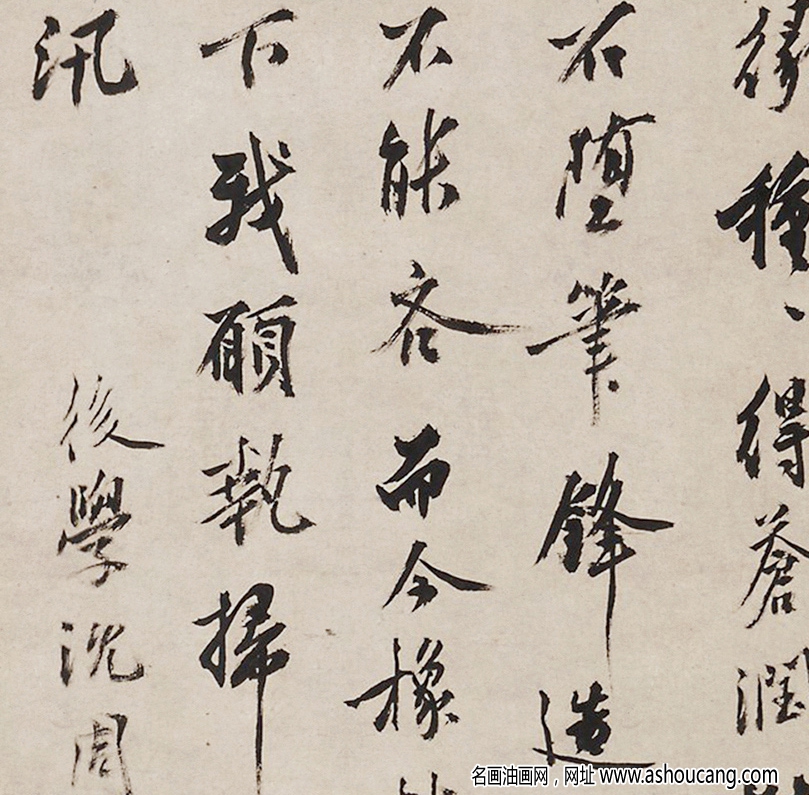 種、得蒼潤
堕筆鋒造
不能吝而今橡
下我願執掃
汛
後學沈周
名画油画网，网址 www.ashoucang.com